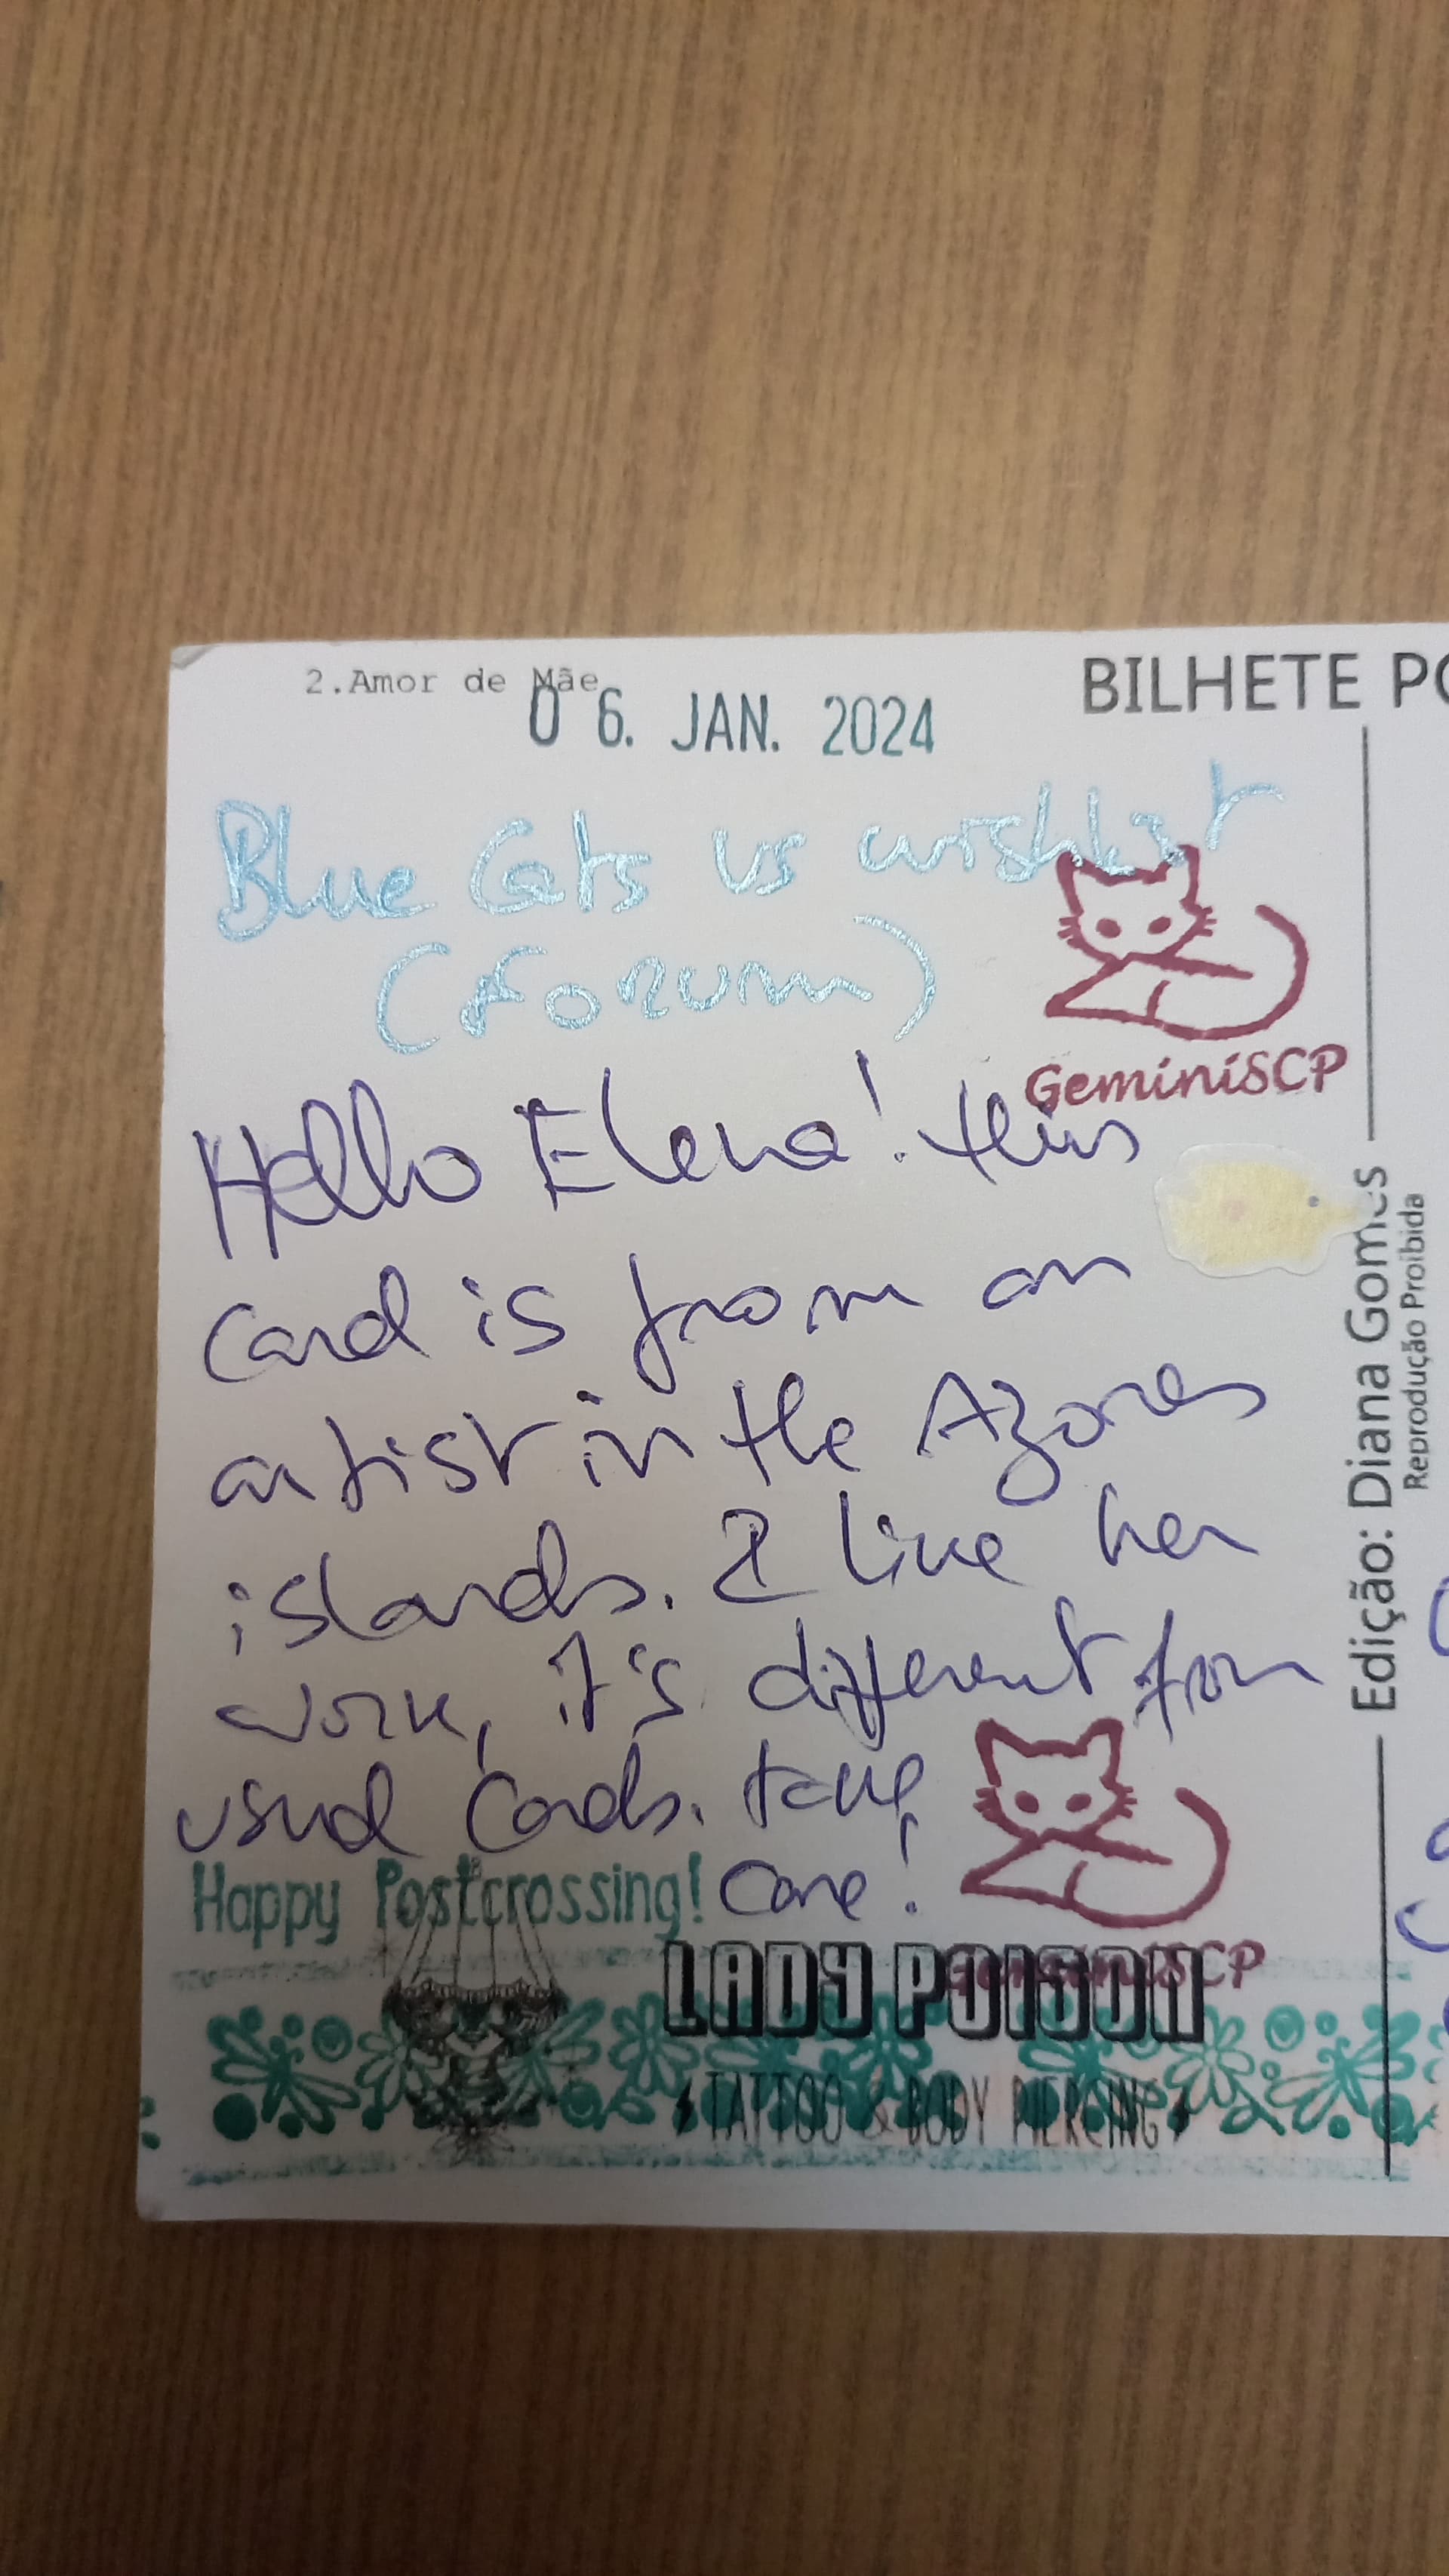 2.Amor de Mãe
BILHETE PO
06. JAN. 2024
Blue Cats vs wishlist
(Forum)
GeminiSCP
Hello Elena! this
card is from an
artist in the Azores
islands. I like her
work, it's different from
usual cards. take
care!
Happy Postcrossing!
GeminiSCP
LADY POISON
TATTOO & BODY PIERCING
Edição: Diana Gomes
Reprodução Proibida